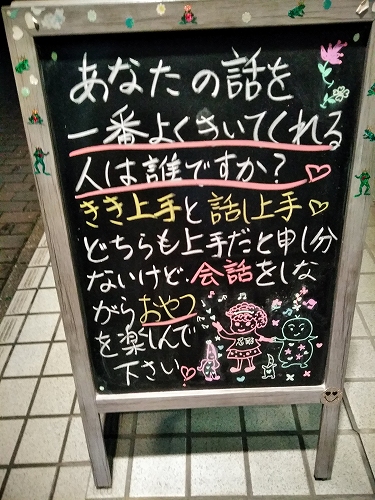 あなたの話を
一番よくきいてくれる
人は誰ですか?
きき上手と話し上手
どちらも上手だと申し分
ないけど、会話をしな
がらおやつ
を楽しんで
下さい